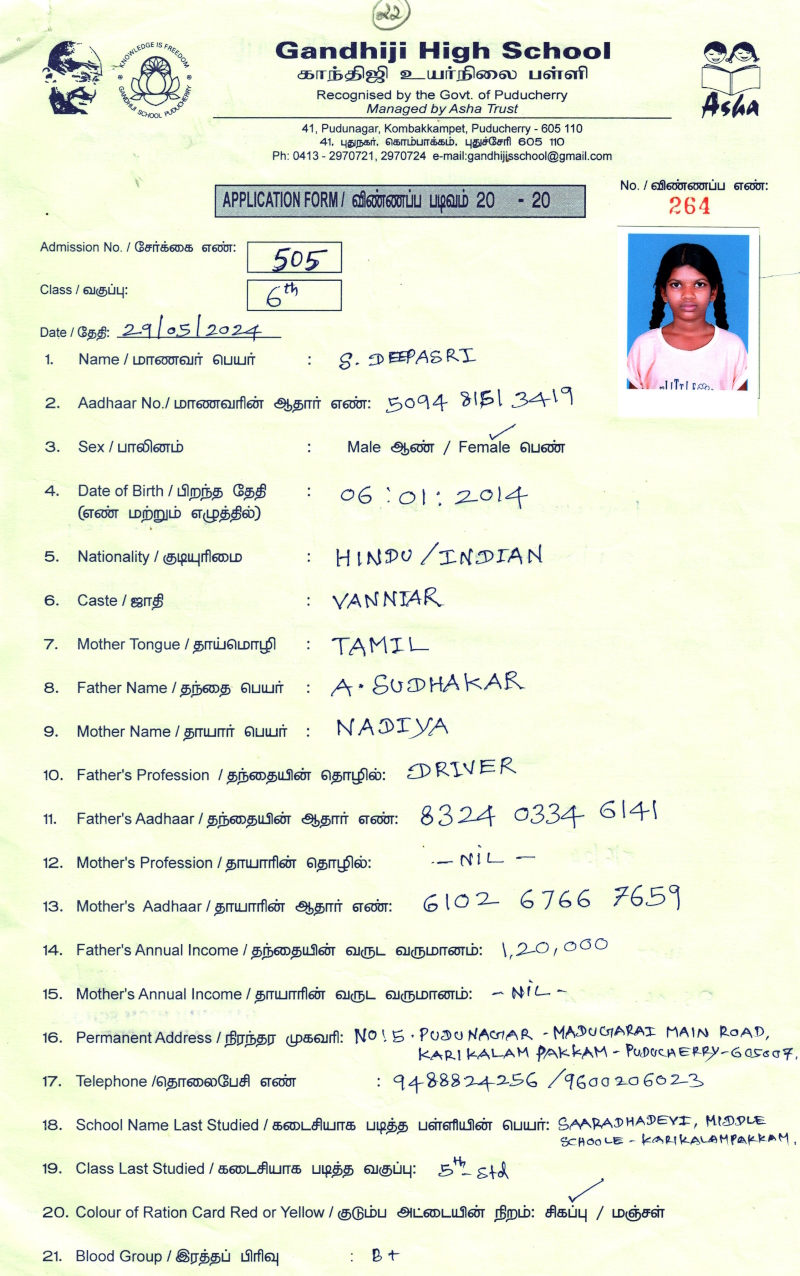 22
Gandhiji High School
காந்திஜி உயர்நிலை பள்ளி
Recognised by the Govt. of Puducherry
Managed by Asha Trust
KNOWLEDGE IS FREEDOM
GANDHIJI SCHOOL PUDUCHERRY
Asha
41, Pudunagar, Kombakkampet, Puducherry - 605 110
41. புதுநகர். கொம்பாக்கம். புதுச்சேரி 605 110
Ph: 0413 - 2970721, 2970724 e-mail:gandhijjsschool@gmail.com
APPLICATION FORM / விண்ணப்ப படிவம் 20 - 20
No. / விண்ணப்ப எண்:
264
Admission No. / சேர்க்கை எண்: 505
Class / வகுப்பு: 6th
Date / தேதி: 29/05/2024
1. Name / மாணவர் பெயர் : S. DEEPASRI
2. Aadhaar No./ மாணவரின் ஆதார் எண்: 5094 8151 3419
3. Sex / பாலினம் : Male ஆண் / Female பெண்
4. Date of Birth / பிறந்த தேதி : 06:01:2014
(எண் மற்றும் எழுத்தில்)
5. Nationality / குடியுரிமை : HINDU/INDIAN
6. Caste / ஜாதி : VANNIAR
7. Mother Tongue / தாய்மொழி : TAMIL
8. Father Name / தந்தை பெயர் : A. SUDHAKAR
9. Mother Name / தாயார் பெயர் : NADIYA
10. Father's Profession / தந்தையின் தொழில்: DRIVER
11. Father's Aadhaar / தந்தையின் ஆதார் எண்: 8324 0334 6141
12. Mother's Profession / தாயாரின் தொழில்: - NIL -
13. Mother's Aadhaar / தாயாரின் ஆதார் எண்: 6102 6766 7659
14. Father's Annual Income / தந்தையின் வருட வருமானம்: 1,20,000
15. Mother's Annual Income / தாயாரின் வருட வருமானம்: - NIL -
16. Permanent Address / நிரந்தர முகவரி: NO!5. PUDUNAGAR - MADUGARAI MAIN ROAD,
KARIKALAM PAKKAM - PUDUCHERRY-605007.
17. Telephone /தொலைபேசி எண் : 9488824256 /9600206023
18. School Name Last Studied / கடைசியாக படித்த பள்ளியின் பெயர்: SAARADHADEVI, MIDDLE
SCHOOLE - KARIKALAMPAKKAM,
19. Class Last Studied / கடைசியாக படித்த வகுப்பு: 5th - Std
20. Colour of Ration Card Red or Yellow / குடும்ப அட்டையின் நிறம்: சிகப்பு / மஞ்சள்
21. Blood Group / இரத்தப் பிரிவு : B+